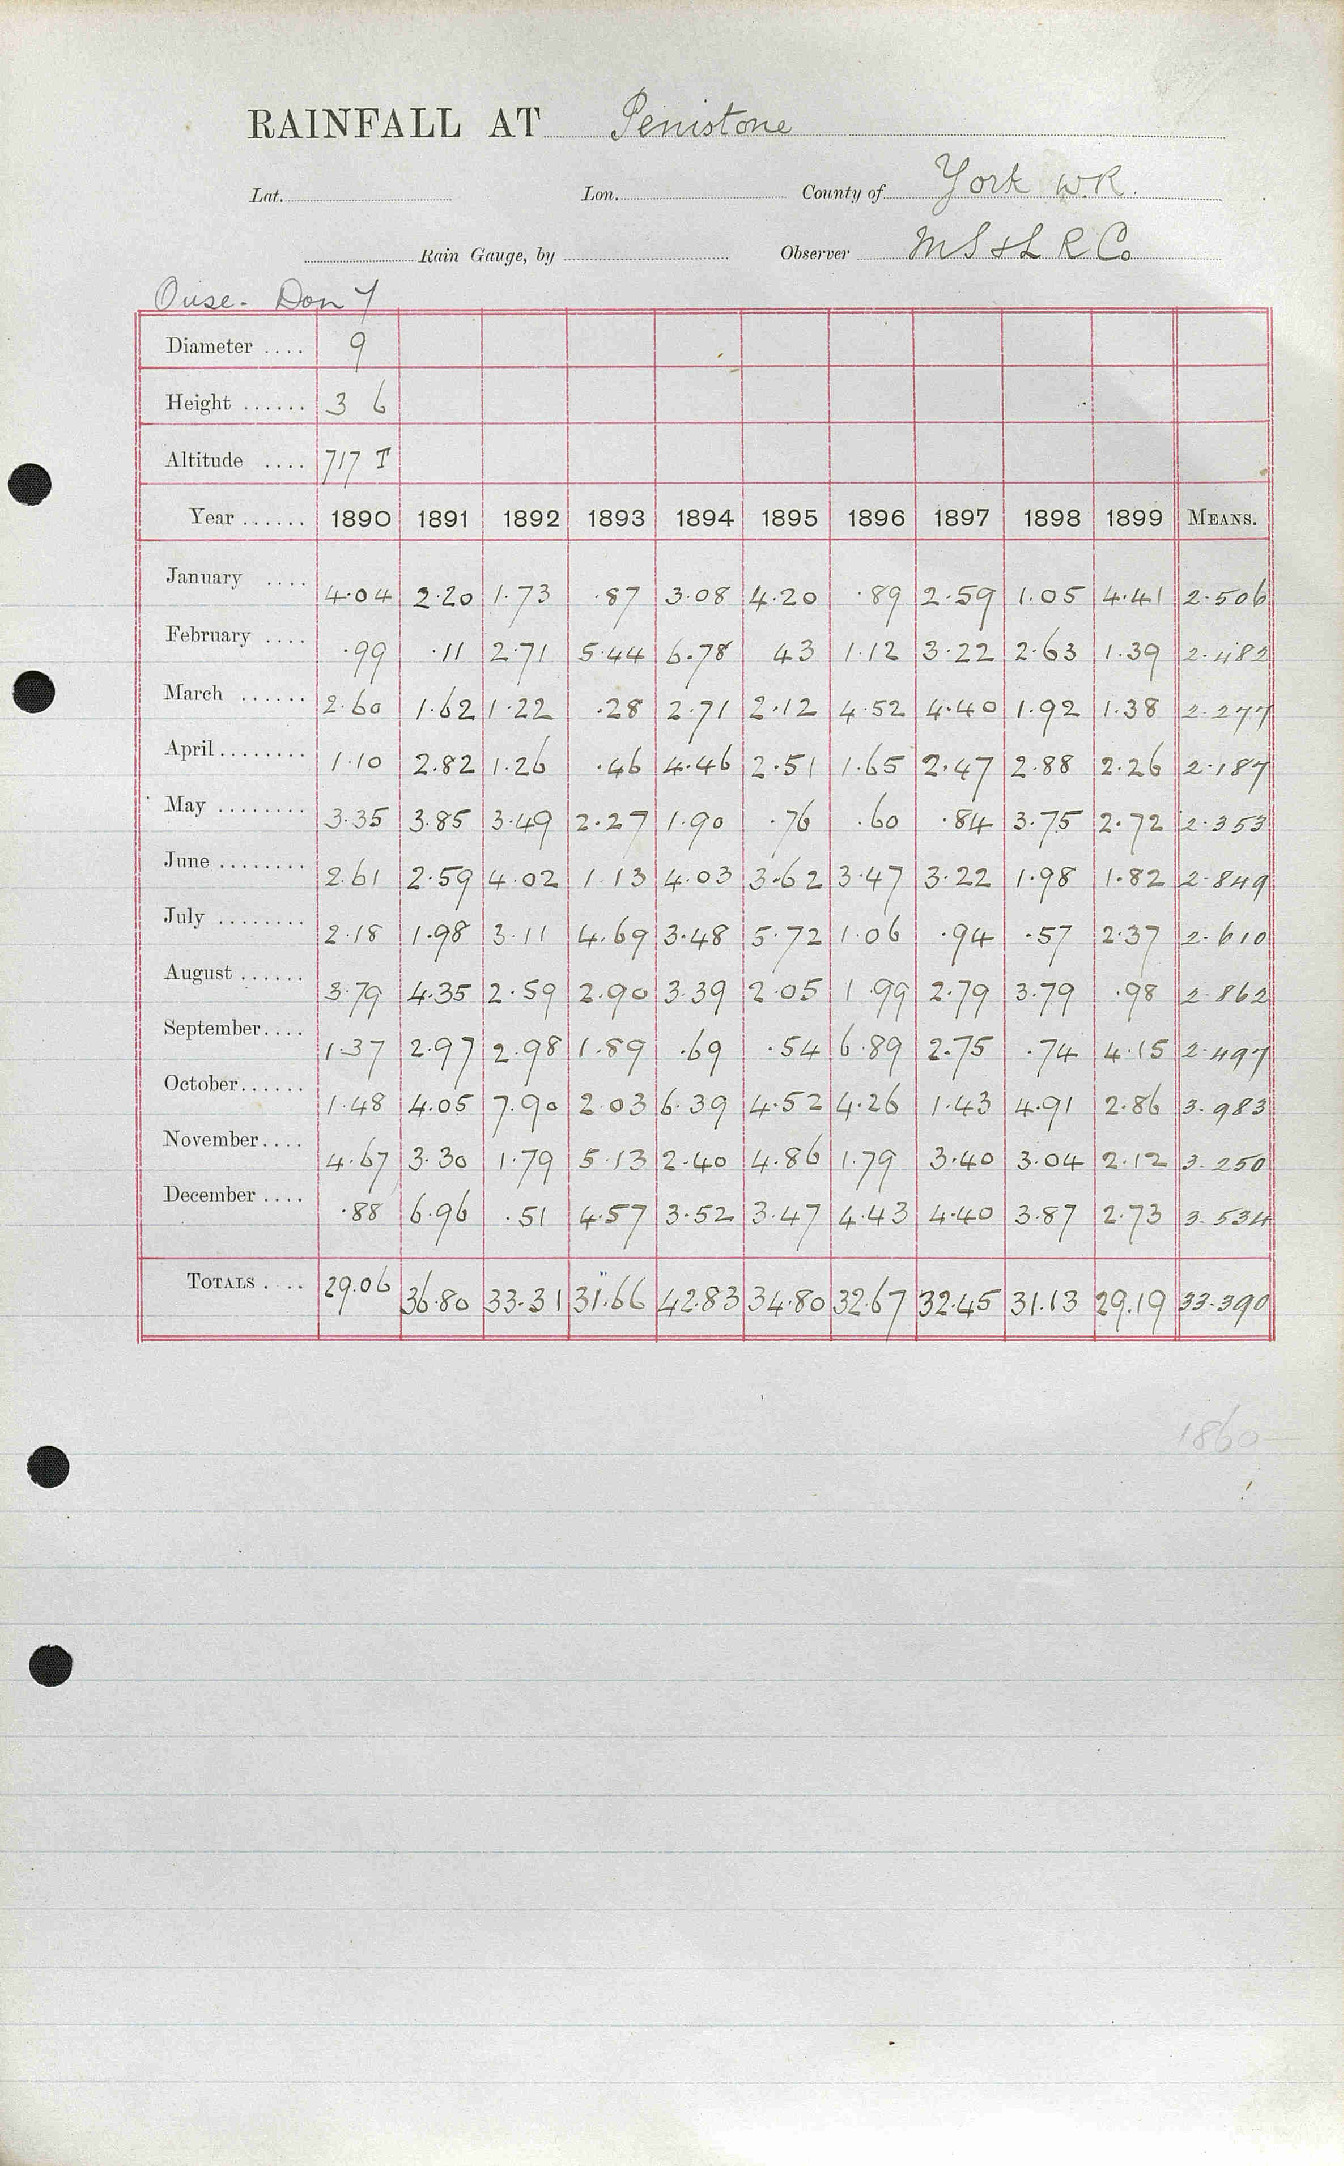 RAINFALL AT Penistone
Lat. Lon. County of York W.R.
Rain Gauge, by Observer M S & L R Co
Ouse. Don Y
Diameter .... 9
Height ...... 3 6
Altitude .... 717 T
Year ...... 1890 1891 1892 1893 1894 1895 1896 1897 1898 1899 MEANS.
January .... 4.04 2.20 1.73 .87 3.08 4.20 .89 2.59 1.05 4.41 2.506
February .... .99 .11 2.71 5.44 6.78 43 1.12 3.22 2.63 1.39 2.482
March ...... 2.60 1.62 1.22 .28 2.71 2.12 4.52 4.40 1.92 1.38 2.277
April ........ 1.10 2.82 1.26 .46 4.46 2.51 1.65 2.47 2.88 2.26 2.187
May ........ 3.35 3.85 3.49 2.27 1.90 .76 .60 .84 3.75 2.72 2.353
June ........ 2.61 2.59 4.02 1.13 4.03 3.62 3.47 3.22 1.98 1.82 2.849
July ........ 2.18 1.98 3.11 4.69 3.48 5.72 1.06 .94 .57 2.37 2.610
August ...... 3.79 4.35 2.59 2.90 3.39 2.05 1.99 2.79 3.79 .98 2.862
September.... 1.37 2.97 2.98 1.89 .69 .54 6.89 2.75 .74 4.15 2.497
October...... 1.48 4.05 7.90 2.03 6.39 4.52 4.26 1.43 4.91 2.86 3.983
November.... 4.67 3.30 1.79 5.13 2.40 4.86 1.79 3.40 3.04 2.12 3.250
December .... .88 6.96 .51 4.57 3.52 3.47 4.43 4.40 3.87 2.73 3.534
TOTALS .... 29.06 36.80 33.31 31.66 42.83 34.80 32.67 32.45 31.13 29.19 33.390
1860